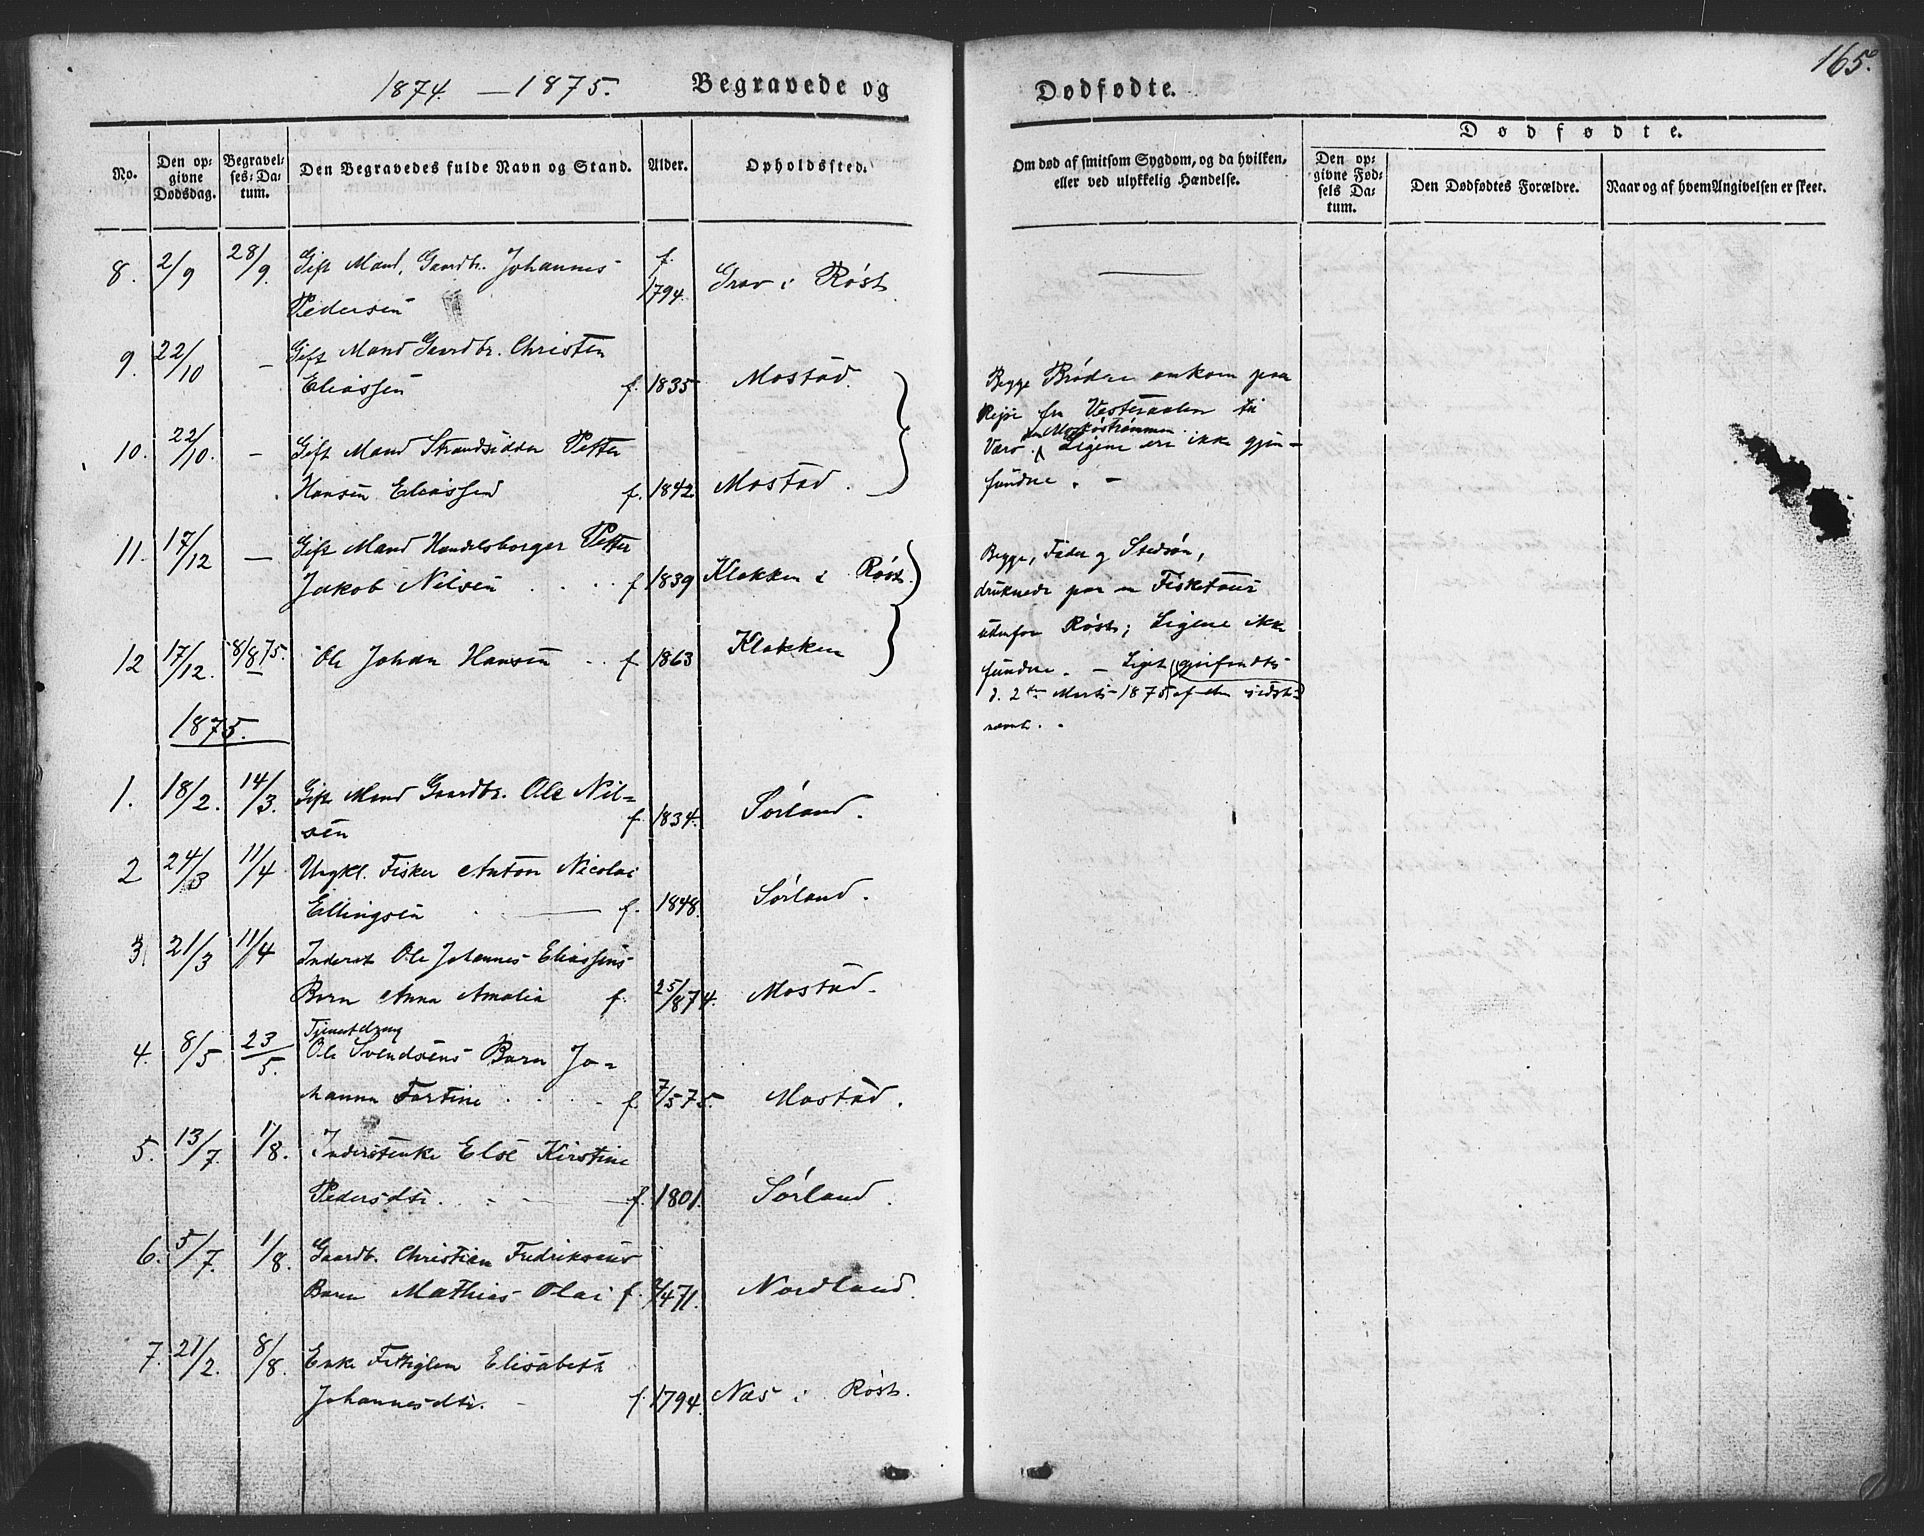 165.
1874. — 1875. Begravede og Dødfødte.
Dødfødte.
No. Den opgivne Dødsdag. Begravelses-Datum. Den Begravedes fulde Navn og Stand. Alder. Opholdssted. Om død af smitsom Sygdom, og da hvilken, eller ved ulykkelig Hændelse. Den opgivne Fødsels Datum. Den Dødfødtes Forældre. Naar og af hvem Angivelsen er skeet.
8. 2/9 28/9 Gift Mand, Gaardbr. Johannes
Pedersen f. 1794. Grav i Røst.
9. 22/10 — Gift Mand Gaardbr. Christen
Eliassen f. 1835 Mostad.
10. 22/10. — Gift Mand Strandsidder Petter
Hansen Eliassen f. 1842 Mostad.
Begge Brødre omkom paa
Rejse fra Vesteraalen til
Værø i Moskøstrømmen. Ligene ere ikke gjen-
fundne. —
11. 17/12 — Gift Mand Handelsborger Petter
Jakob Nilsen f 1839 Klakken i Røst.
12 17/12. 8/8 75. Ole Johan Hansen f 1863 Klakken
Begge, Fader og Stedsøn,
druknede paa en Fisketour
udenfor Røst; Ligene ikke
fundne. — Liget gjenfandts
d. 2den Marts 1875 af den sidst-
nævnte.
1875.
1. 18/2. 14/3. Gift Mand Gaardbr. Ole Nil-
sen f. 1834. Sørland.
2 24/3 11/4 Ungkl. Fisker Anton Nicolai
Ellingsen f. 1848. Sørland.
3. 21/3 11/4 Inderst Ole Johannes Eliassens
Barn Anna Amalia f. 25/8 74. Mostad.
4. 8/5 23/5. Tjenestdreng
Ole Svendsens Barn Jo-
hanna Fortine f. 7/5 75. Mostad.
5. 13/7. 1/8. Inderstenke Else Kirstine
Pedersdtr. f. 1801. Sørland.
6. 5/7. 1/8. Gaardb. Christian Fredriksens
Barn Mathias Olai f. 2/4 71. Nordland.
7. 21/2. 8/8. Enke Fattiglem Elisabeth
Johannesdtr. f. 1794. Næs i Røst.